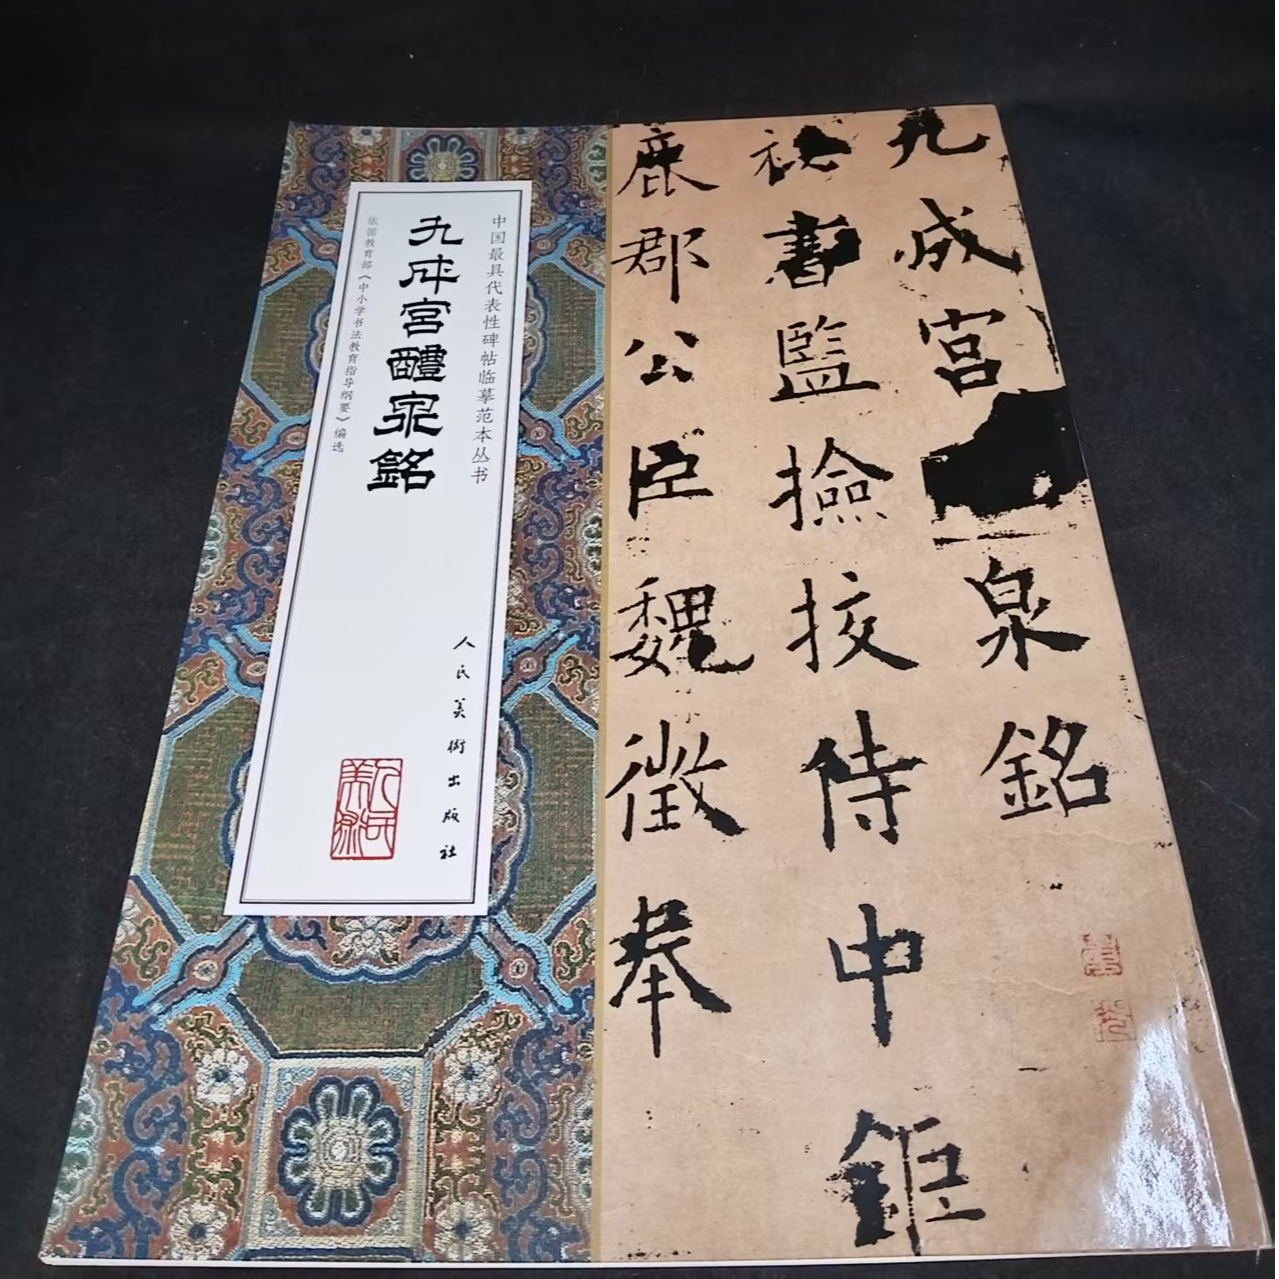 中国最具代表性碑帖临摹范本丛书
九成宮醴泉銘
依据教育部《中小学书法教育指导纲要》编选
人民美術出版社
人民美術
九成宮泉銘
秘書監撿挍侍中鉅
鹿郡公臣魏徵奉